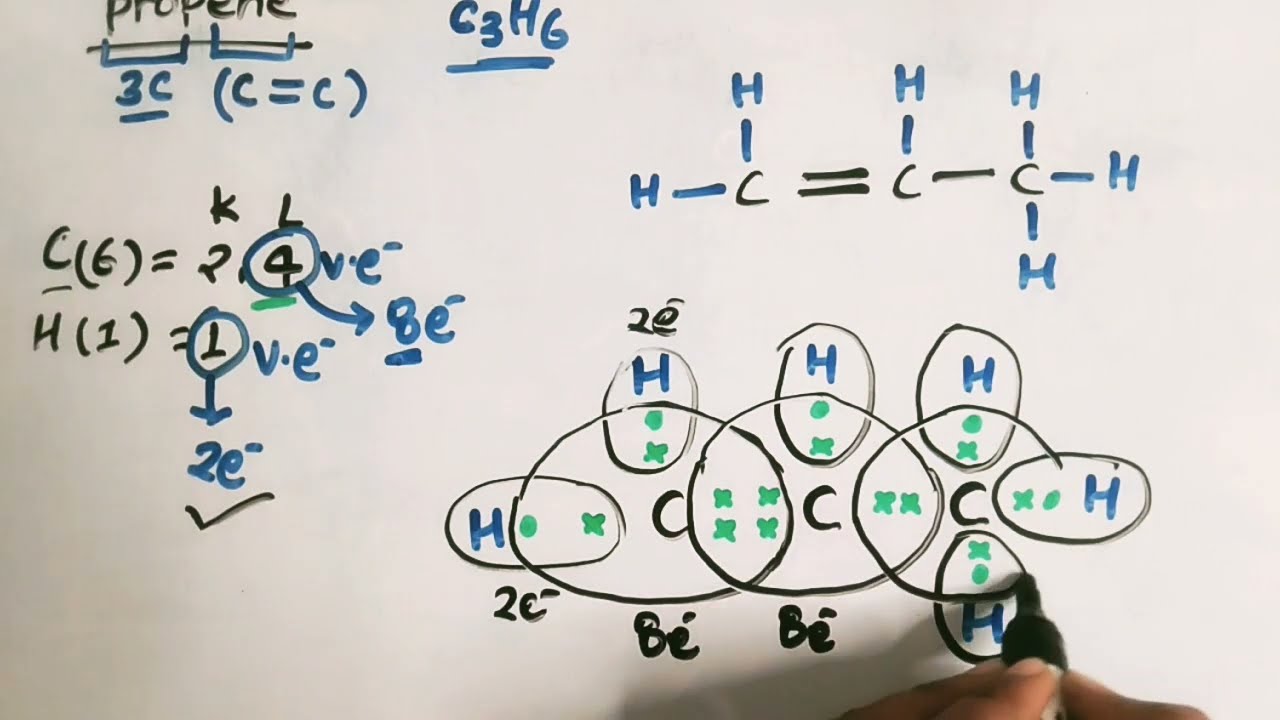 propene
3C (C=C)
C3H6
K L
C(6) = 2,4 v.e⁻
8e⁻
H(1) = 1 v.e⁻
2e⁻
H H H
H—C=C—C—H
H
2e⁻
H H H
H C C C H
H
2e⁻
8e⁻ 8e⁻